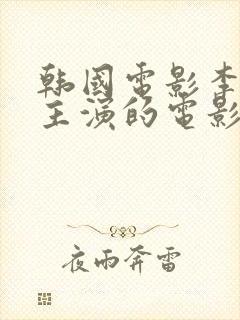 韩國電影李
主演的電影
夜雨奔雷